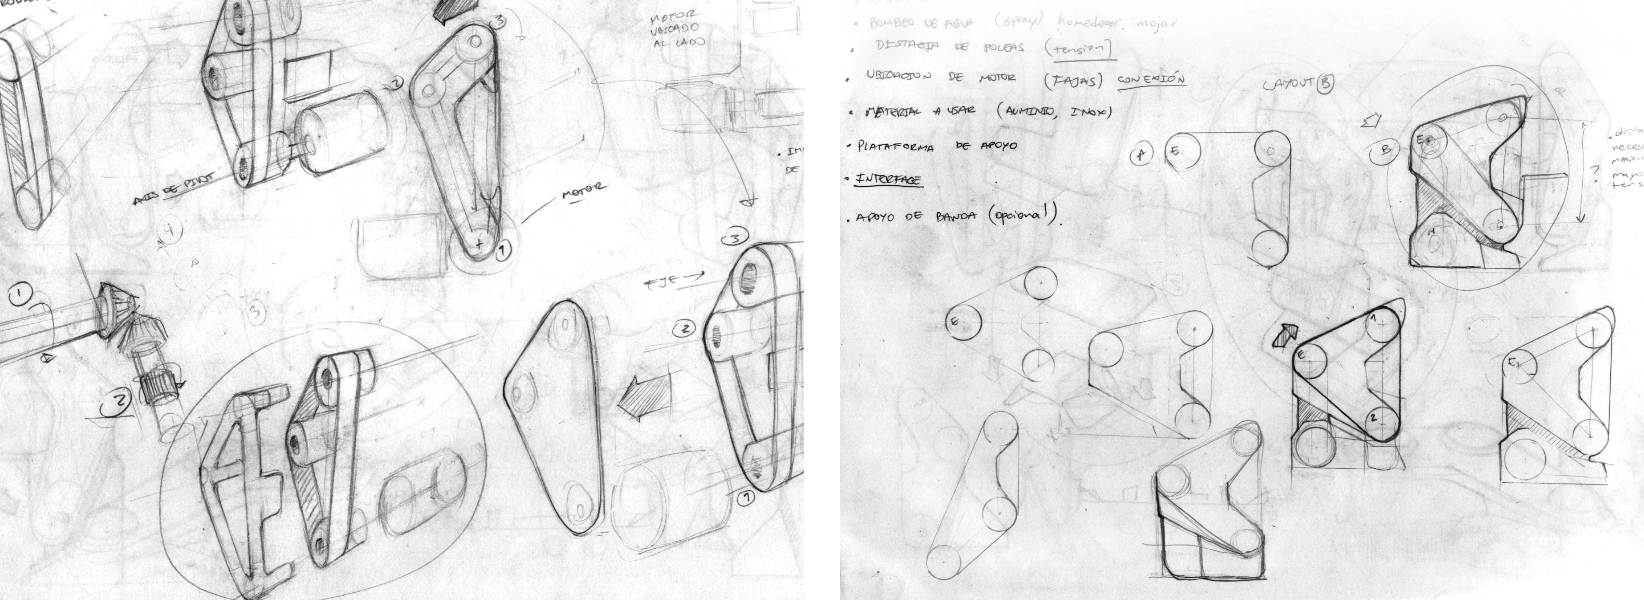 MOTOR
UBICADO
AL LADO
3
2
EJE DE PIVOT
MOTOR
1
4
1
2
3
EJE
3
2
1
• IM
DE
• BOMBEO DE AGUA (spray) homedecer, mojar
• DISTACIA DE POLEAS (tension)
• UBICACION DE MOTOR (FAJAS) CONEXIÓN
• MATERIAL A USAR (ALUMINIO, INOX)
• PLATAFORMA DE APOYO
• INTERFACE
• APOYO DE BANDA (opcional).
LAYOUT B
A
E.
C
B
E
M
?
E
E
1
2
E